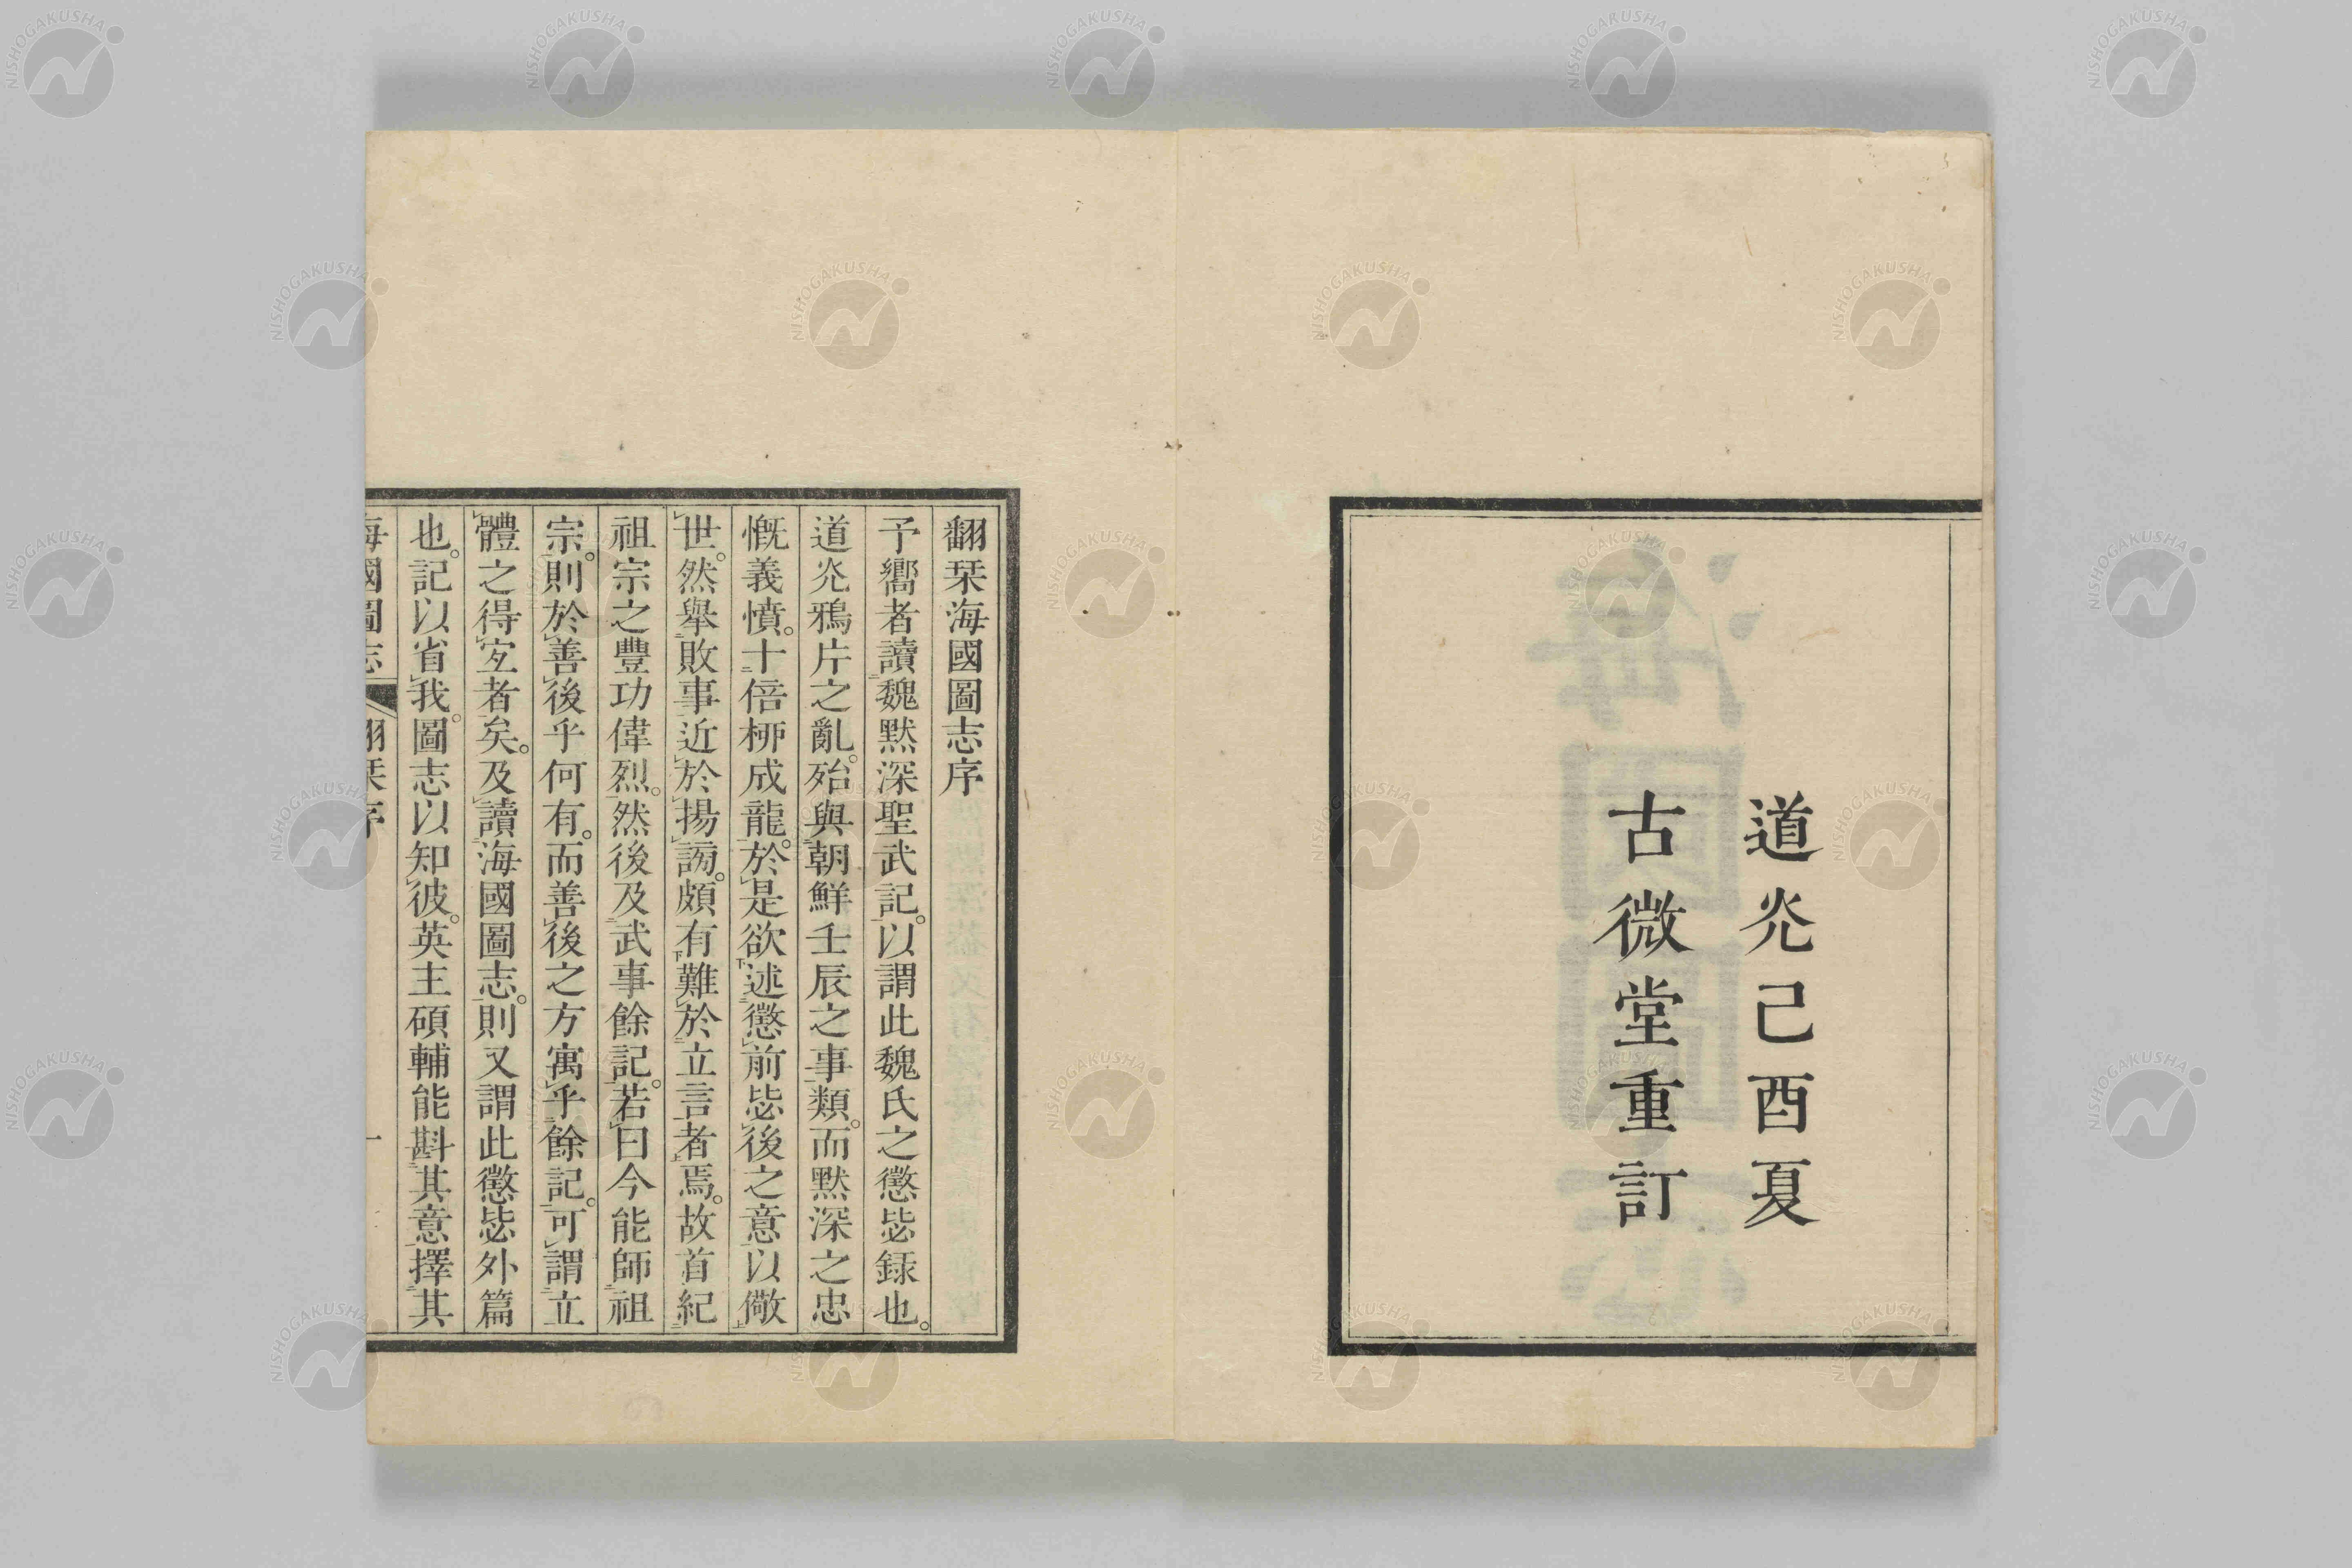 道光己酉夏
古微堂重訂
翻栞海國圖志序
予嚮者讀魏默深聖武記。以謂此魏氏之懲毖録也。
道光鴉片之亂。殆與朝鮮壬辰之事類。而默深之忠
慨義憤。十倍桺成龍。於是欲述懲前毖後之意以儆
世。然舉敗事近於揚謗。頗有難於立言者焉。故首紀
祖宗之豐功偉烈。然後及武事餘記。若曰今能師祖
宗。則於善後乎何有。而善後之方寓乎餘記。可謂立
體之得宐者矣。及讀海國圖志。則又謂此懲毖外篇
也。記以省我。圖志以知彼。英主碩輔能斟其意擇其
海國圖志 翻栞序 一
NISHOGAKUSHA